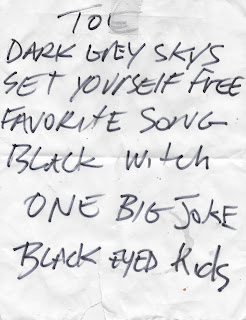 DARK GREY SKYS
SET YOURSELF FREE
FAVORITE SONG
BLACK WITCH
ONE BIG JOKE
BLACK EYED KIDS